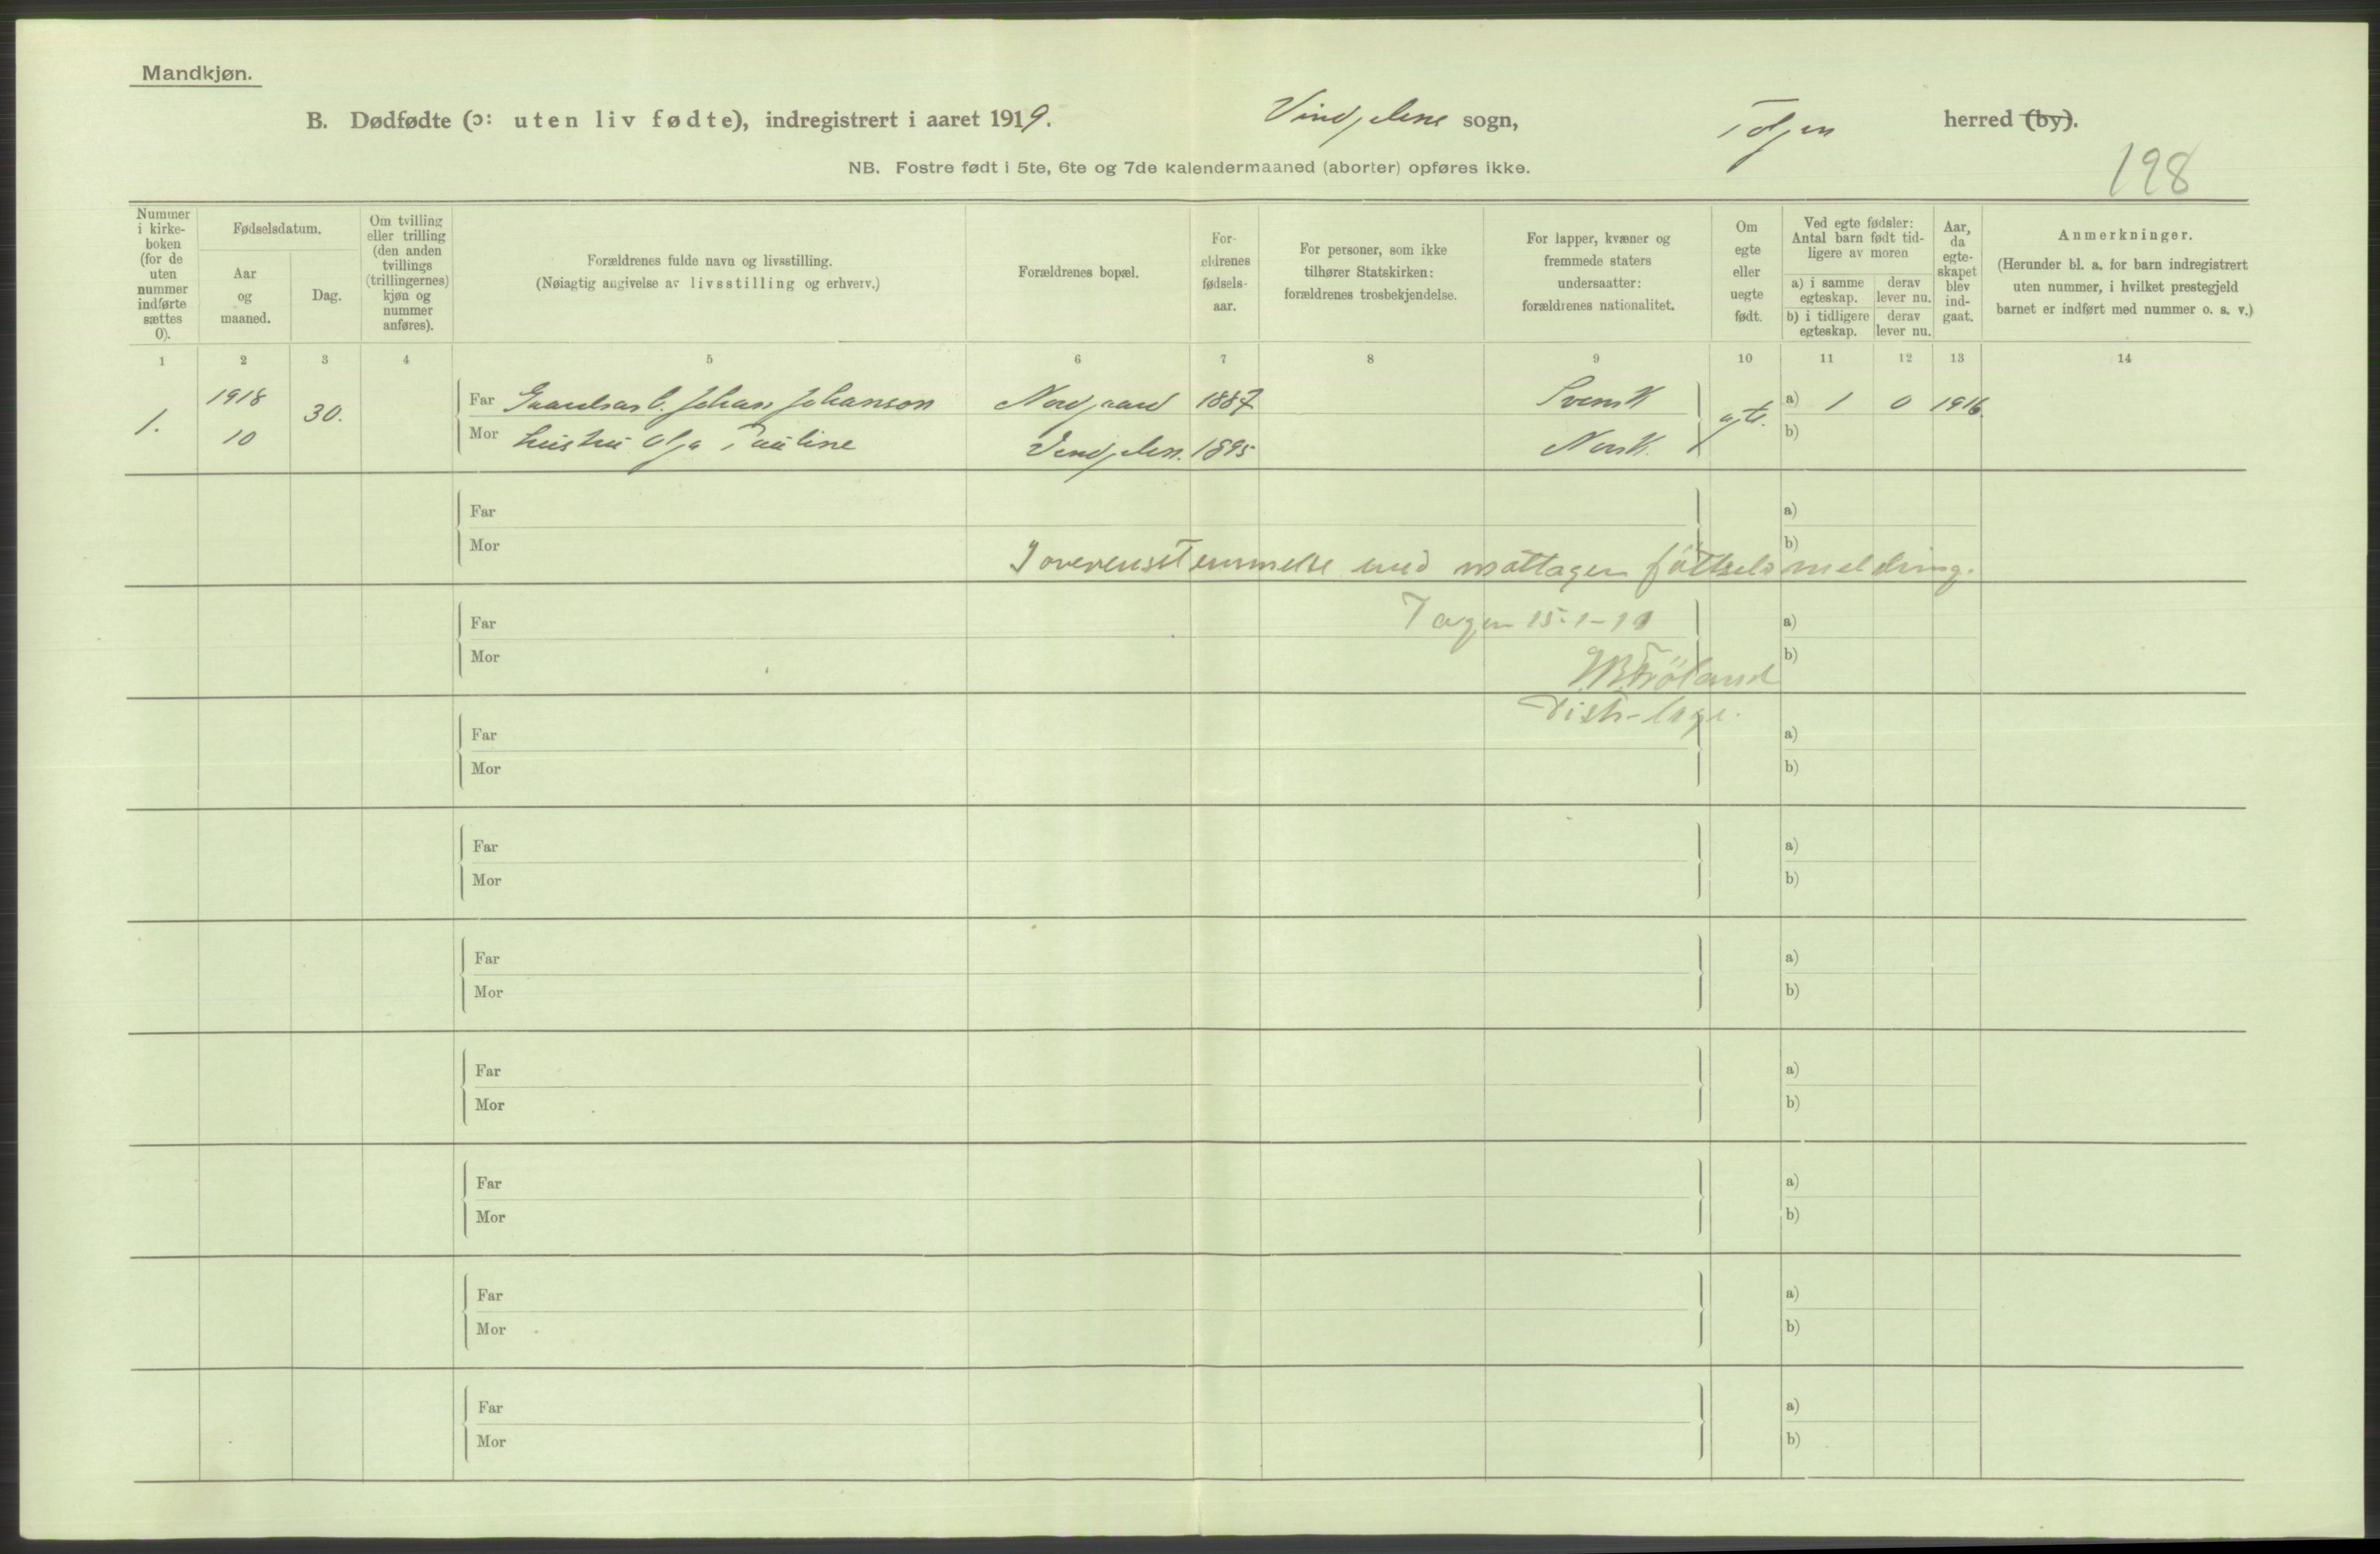 Mandkjøn.
B. Dødfødte (ɔ: uten liv fødte), indregistrert i aaret 1919. Vingelens sogn, Tolgen herred (by).
NB. Fostre født i 5te, 6te og 7de kalendermaaned (aborter) opføres ikke.
198
Nummer i kirke-boken (for de uten nummer indførte sættes 0).
Fødselsdatum.
Aar og maaned.
Dag.
Om tvilling eller trilling (den anden tvillings (trillingernes) kjøn og nummer anføres).
Forældrenes fulde navn og livsstilling.
(Nøiagtig angivelse av livsstilling og erhverv.)
Forældrenes bopæl.
For-eldrenes fødsels-aar.
For personer, som ikke tilhører Statskirken: forældrenes trosbekjendelse.
For lapper, kvæner og fremmede staters undersaatter: forældrenes nationalitet.
Om egte eller uegte født.
Ved egte fødsler: Antal barn født tid-ligere av moren
a) i samme egteskap. derav lever nu.
b) i tidligere egteskap. derav lever nu.
Aar, da egte-skapet blev ind-gaat.
Anmerkninger.
(Herunder bl. a. for barn indregistrert uten nummer, i hvilket prestegjeld barnet er indført med nummer o. s. v.)
1 2 3 4 5 6 7 8 9 10 11 12 13 14
1. 1918 10 30.
Far Johan Johanson Nordgaard 1887 Svensk egte. a) 1 0 1916.
Mor hustru Olga Pauline Vingelen. 1895 Norsk. b)
Far a)
Mor b)
I overensstemmelse med mottagen fødselsmelding.
Far 15-1-19 a)
Mor b)
Far Distr-læge. a)
Mor b)
Far a)
Mor b)
Far a)
Mor b)
Far a)
Mor b)
Far a)
Mor b)
Far a)
Mor b)
Far a)
Mor b)